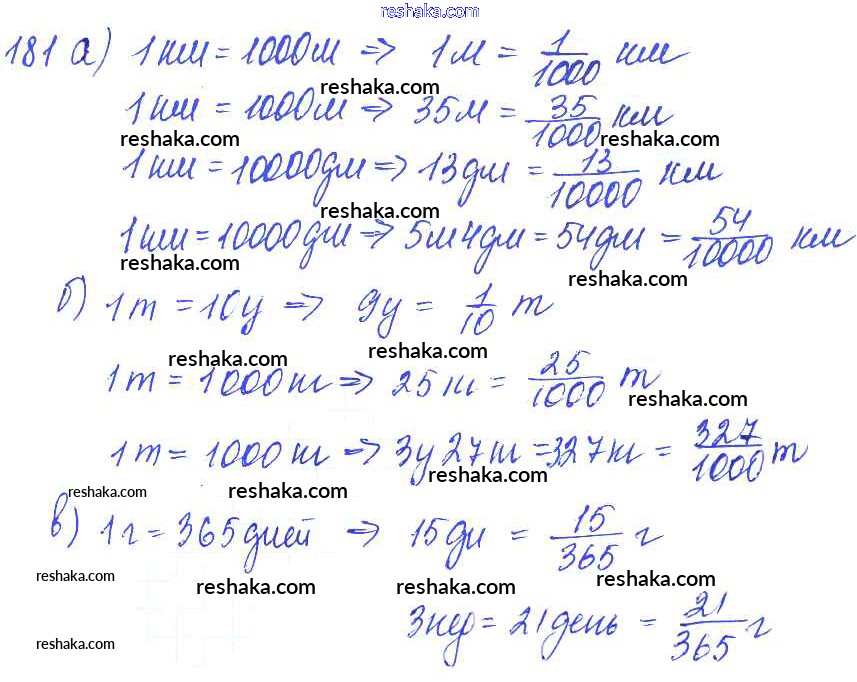 reshaka.com
181 а) 1 км = 1000м => 1м = 1/1000 км
reshaka.com
1 км = 1000м => 35м = 35/1000 км
reshaka.com reshaka.com
1 км = 10000дм => 13дм = 13/10000 км
reshaka.com
1 км = 10000дм => 5м4дм = 54дм = 54/10000 км
reshaka.com reshaka.com
б) 1т = 10ц => 9ц = 1/10 т
reshaka.com reshaka.com
1т = 1000 кг => 25 кг = 25/1000 т
reshaka.com
1т = 1000 кг => 3ц 27 кг = 327 кг = 327/1000 т
reshaka.com reshaka.com reshaka.com
в) 1г = 365 дней => 15дн = 15/365 г
reshaka.com reshaka.com reshaka.com reshaka.com
3 нед = 21 день = 21/365 г
reshaka.com